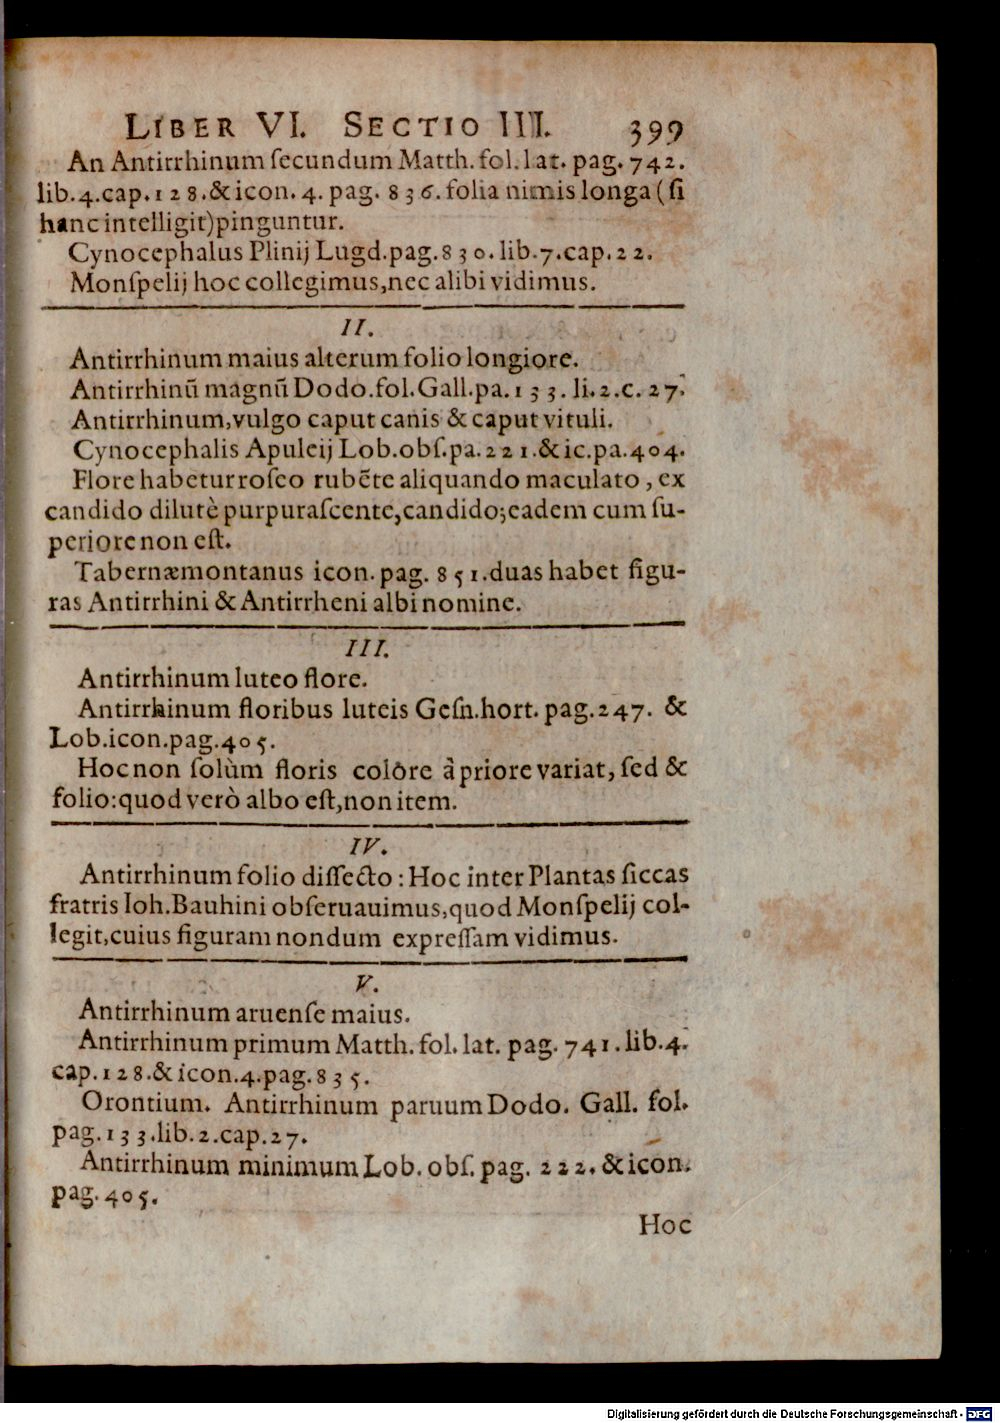 LIBER VI. SECTIO III. 399
An Antirrhinum ſecundum Matth. fol. lat. pag. 742.
lib. 4. cap. 128. & icon. 4. pag. 836. folia nimis longa (ſi
hanc intelligit) pinguntur.
Cynocephalus Plinij Lugd. pag. 830. lib. 7. cap. 22.
Monſpelij hoc collegimus, nec alibi vidimus.
II.
Antirrhinum maius alterum folio longiore.
Antirrhinū magnū Dodo. fol. Gall. pa. 133. li. 2. c. 27.
Antirrhinum, vulgo caput canis & caput vituli.
Cynocephalis Apuleij Lob. obſ. pa. 221. & ic. pa. 404.
Flore habetur roſeo rubēte aliquando maculato, ex
candido dilutè purpuraſcente, candido; eadem cum ſu-
periore non eſt.
Tabernæmontanus icon. pag. 851. duas habet figu-
ras Antirrhini & Antirrheni albi nomine.
III.
Antirrhinum luteo flore.
Antirrhinum floribus luteis Geſn. hort. pag. 247. &
Lob. icon. pag. 405.
Hoc non ſolùm floris colore à priore variat, ſed &
folio: quod verò albo eſt, non item.
IV.
Antirrhinum folio diſſecto: Hoc inter Plantas ſiccas
fratris Ioh. Bauhini obſeruauimus, quod Monſpelij col-
legit, cuius figuram nondum expreſſam vidimus.
V.
Antirrhinum aruenſe maius.
Antirrhinum primum Matth. fol. lat. pag. 741. lib. 4.
cap. 128. & icon. 4. pag. 835.
Orontium. Antirrhinum paruum Dodo. Gall. fol.
pag. 133. lib. 2. cap. 27.
Antirrhinum minimum Lob. obſ. pag. 222. & icon.
pag. 405.
Hoc
Digitalisierung gefördert durch die Deutsche Forschungsgemeinschaft - DFG